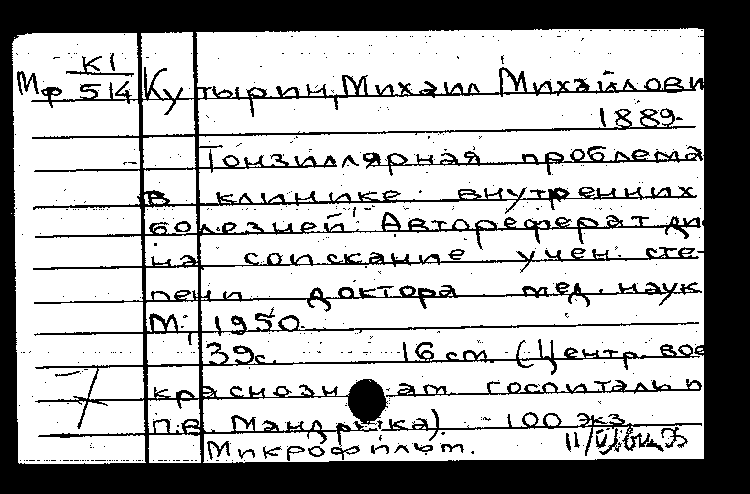 К1
Мф 514 Кутырин, Михаил Михайлови
1889-
Тонзиллярная проблема
в клинике внутренних
болезней. Автореферат ди
на соискание учен. сте-
пени доктора мед. наук
М., 1950.
39с. 16 см. (Центр. вое
краснозн ам госпиталь и
П.В. Мандрыка). - 100 экз.
Микрофильм.